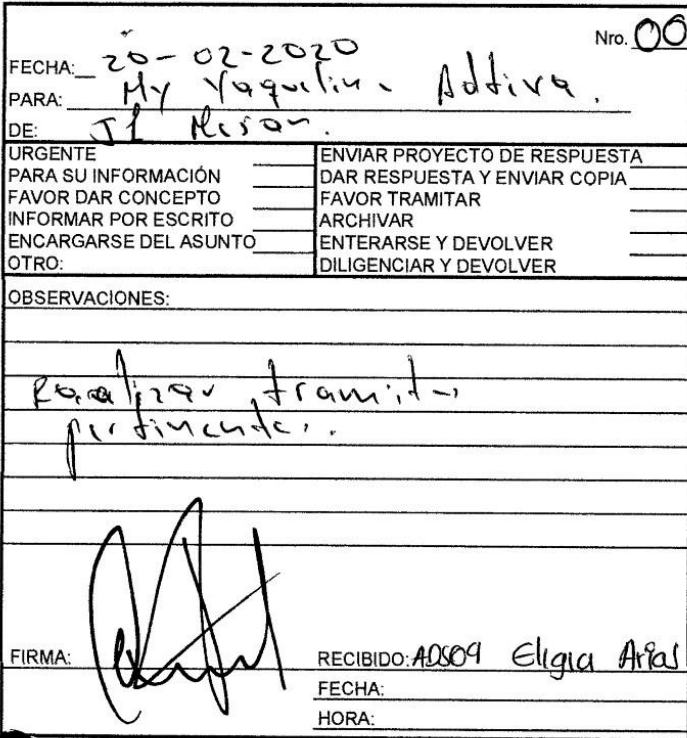 Nro. 00
FECHA: 20-02-2020
PARA: My Yaqueline Adtiva.
DE:
URGENTE
PARA SU INFORMACIÓN
FAVOR DAR CONCEPTO
INFORMAR POR ESCRITO
ENCARGARSE DEL ASUNTO
OTRO:
ENVIAR PROYECTO DE RESPUESTA
DAR RESPUESTA Y ENVIAR COPIA
FAVOR TRAMITAR
ARCHIVAR
ENTERARSE Y DEVOLVER
DILIGENCIAR Y DEVOLVER
OBSERVACIONES:
Realizar tramites
pertinentes.
FIRMA:
RECIBIDO: ADS09 Eligia Arias
FECHA:
HORA: